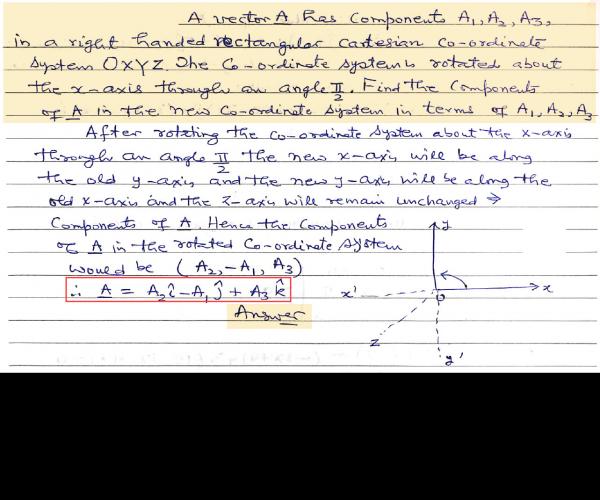 A vector A has components A₁, A₂, A₃,
in a right handed rectangular cartesian co-ordinate
system OXYZ. The co-ordinate system is rotated about
the x-axis through an angle π/2. Find the components
of A in the new co-ordinate system in terms of A₁, A₂, A₃
After rotating the co-ordinate system about the x-axis
through an angle π/2 the new x-axis will be along
the old y-axis and the new y-axis will be along the
old x-axis and the z-axis will remain unchanged ⇒
Components of A. Hence the components
of A in the rotated co-ordinate system
would be (A₂, -A₁, A₃)
∴ A = A₂î - A₁ĵ + A₃k̂
Answer
y
x
x'
o
z
y'